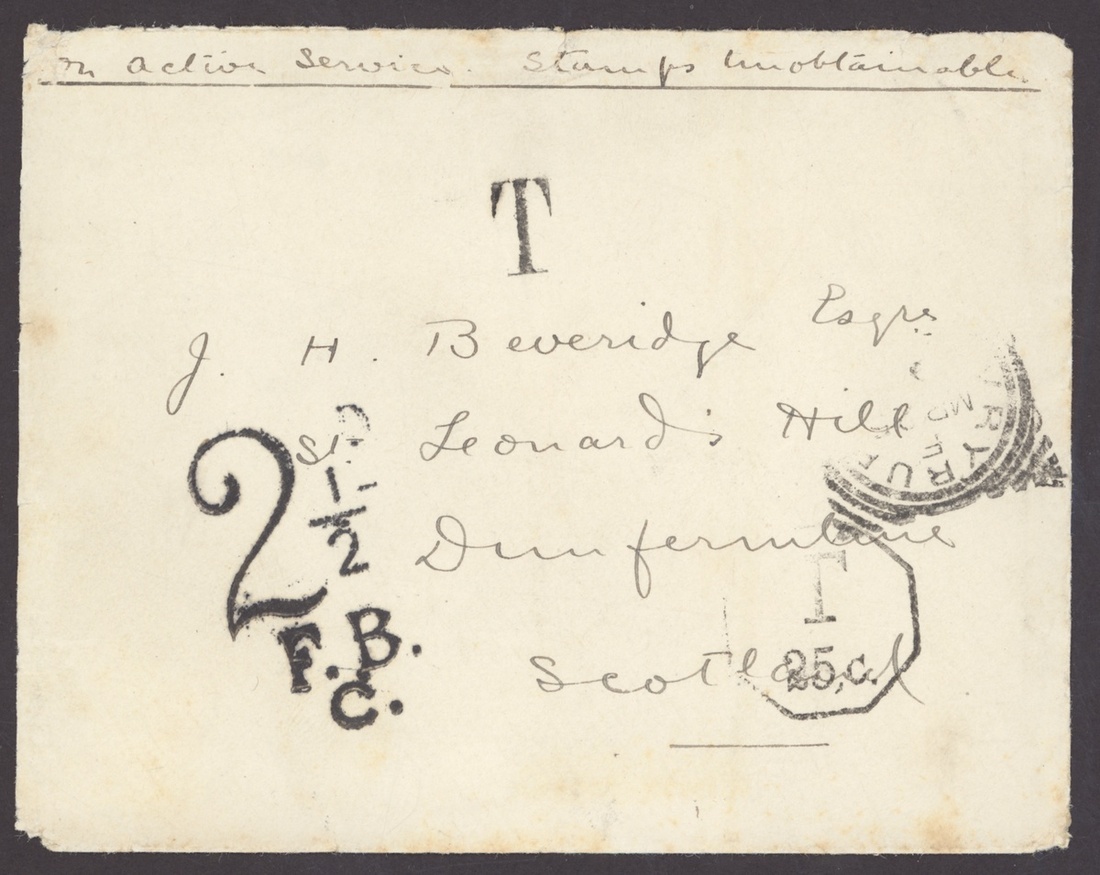 On Active Service. Stamps Unobtainable.
T
J. H. Beveridge Esqre
St. Leonard's Hill
Dunfermline
Scotland
2 1/2 D
F.B.
C.
T
25,c.
MR